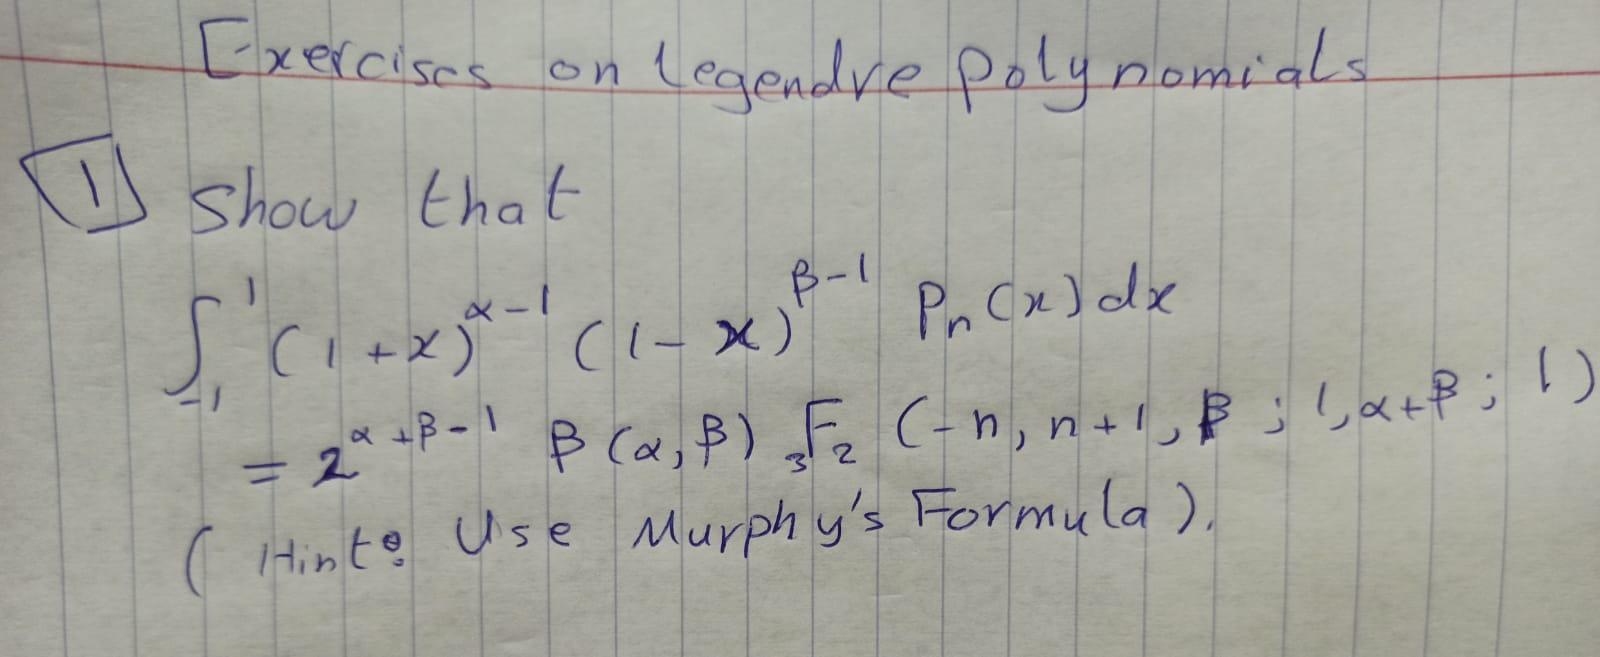 Exercises on Legendre polynomials
1 Show that
∫₋₁¹ (1+x)^{α-1} (1-x)^{β-1} Pₙ(x) dx
= 2^{α+β-1} β(α, β) ₃F₂ (-n, n+1, β ; 1, α+β ; 1)
( Hint: Use Murphy's Formula ).